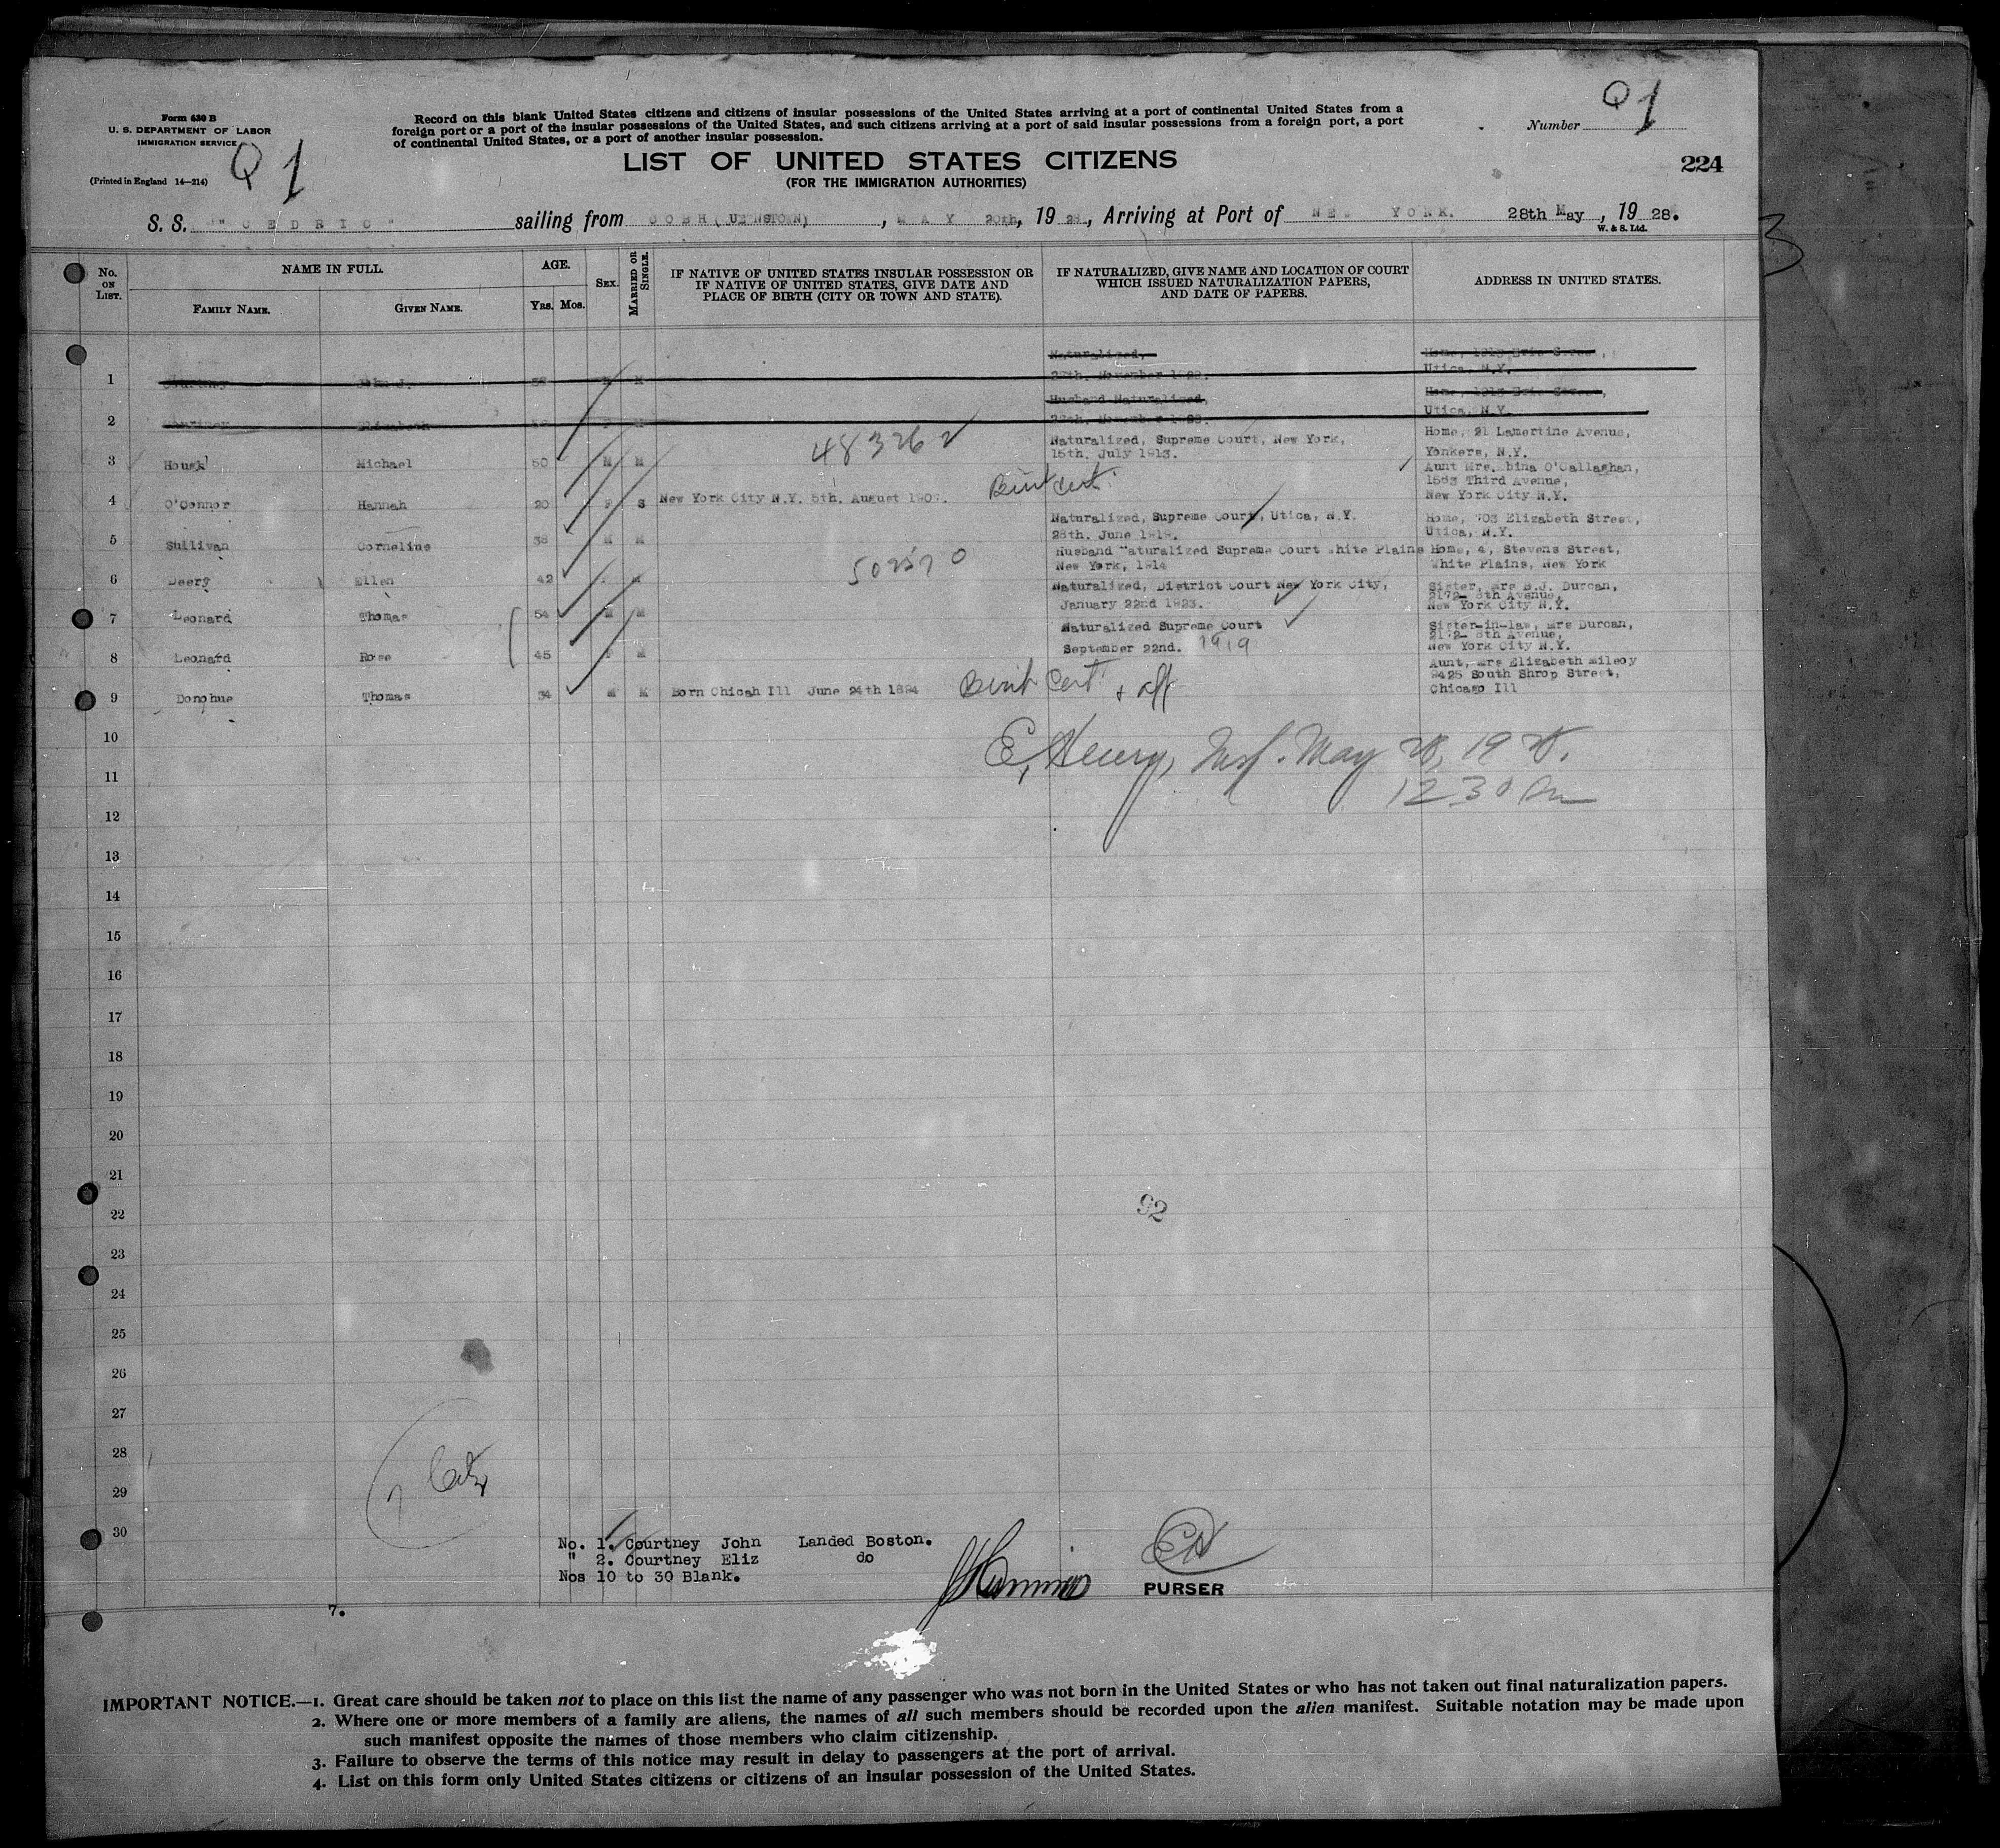 Form 630 B
U. S. DEPARTMENT OF LABOR
IMMIGRATION SERVICE
Q 1
(Printed in England 14—214)
Record on this blank United States citizens and citizens of insular possessions of the United States arriving at a port of continental United States from a
foreign port or a port of the insular possessions of the United States, and such citizens arriving at a port of said insular possessions from a foreign port, a port
of continental United States, or a port of another insular possession.
Number Q 1
LIST OF UNITED STATES CITIZENS
(FOR THE IMMIGRATION AUTHORITIES)
224
S. S. "CEDRIC" sailing from COBH (QUEENSTOWN), MAY 20th, 19 28, Arriving at Port of NEW YORK. 28th May, 19 28.
W. & S. Ltd.
No. ON LIST.
NAME IN FULL.
FAMILY NAME.
GIVEN NAME.
AGE.
Yrs. Mos.
SEX.
MARRIED OR SINGLE.
IF NATIVE OF UNITED STATES INSULAR POSSESSION OR
IF NATIVE OF UNITED STATES, GIVE DATE AND
PLACE OF BIRTH (CITY OR TOWN AND STATE).
IF NATURALIZED, GIVE NAME AND LOCATION OF COURT
WHICH ISSUED NATURALIZATION PAPERS,
AND DATE OF PAPERS.
ADDRESS IN UNITED STATES.
Naturalized, Home, 1213 Erie Street,
1 Courtney John J. M M November Utica, N.Y.
Husband Naturalized, Home, 1213 Erie Street,
2 Courtney Elizabeth F M November Utica, N.Y.
48326 Naturalized, Supreme Court, New York, Home, 21 Lamertine Avenue,
3 Michael 50 M M 15th. July 1913. Yonkers, N.Y.
Aunt Mrs. O'Callaghan,
1563 Third Avenue,
4 O'Connor Hannah 20 F S New York City N.Y. 5th. August Birt Cert. New York City N.Y.
Naturalized, Supreme Court, Utica, N.Y. Home, 703 Elizabeth Street,
5 Sullivan Cornelius 38 M M 28th. June Utica, N.Y.
502570 Husband Naturalized Supreme Court White Plains Home, 4, Stevens Street,
6 Deery Ellen 42 F M New York, 1914 White Plains, New York
Naturalized, District Court New York City, Sister, Mrs B.J. Durcan,
2172- 8th Avenue,
7 Leonard Thomas 54 M M January 22nd 1923. New York City N.Y.
Naturalized Supreme Court Sister-in-law, Mrs Durcan,
2172- 8th Avenue,
8 Leonard Rose 45 F M September 22nd. 1919 New York City N.Y.
Aunt, Mrs Elizabeth Mileoy
9425 South Shrop Street,
9 Donohue Thomas 34 M M Born Chicah Ill June 24th 1894 Birt Cert + aff Chicago Ill
10 E. Henry, Insp. May 28, 1928.
11 1230 Pm
12
13
14
15
16
17
18
19
20
21
22
92
23
24
25
26
27
28
29
30
No. 1. Courtney John Landed Boston.
" 2. Courtney Eliz do
Nos 10 to 30 Blank.
PURSER
7.
IMPORTANT NOTICE.—1. Great care should be taken not to place on this list the name of any passenger who was not born in the United States or who has not taken out final naturalization papers.
2. Where one or more members of a family are aliens, the names of all such members should be recorded upon the alien manifest. Suitable notation may be made upon
such manifest opposite the names of those members who claim citizenship.
3. Failure to observe the terms of this notice may result in delay to passengers at the port of arrival.
4. List on this form only United States citizens or citizens of an insular possession of the United States.